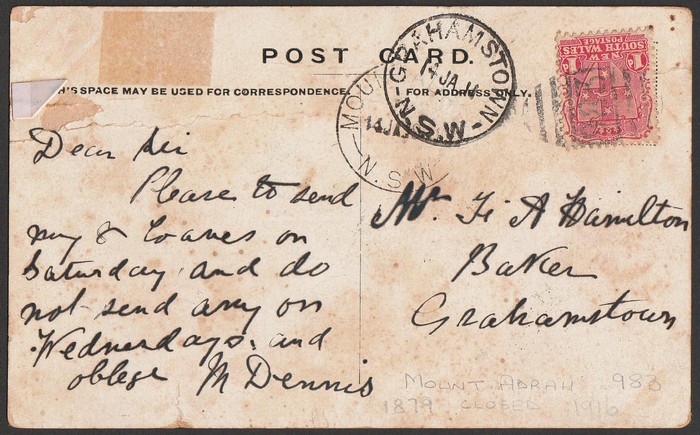 POST CARD.
THIS SPACE MAY BE USED FOR CORRESPONDENCE.
FOR ADDRESS ONLY.
GRAHAMSTOWN
14 JA 11
N.S.W
MOUN
14 JA
N.S.W
NEW
SOUTH WALES
POSTAGE
1D 1D
Dear Sir
Please to send
my 8 Loaves on
Saturday and do
not send any on
Wednerdays. and
oblege M Dennis
Mr F A Hamilton
Baker
Grahamstown
MOUNT ADRAH 983
1879 CLOSED 1916